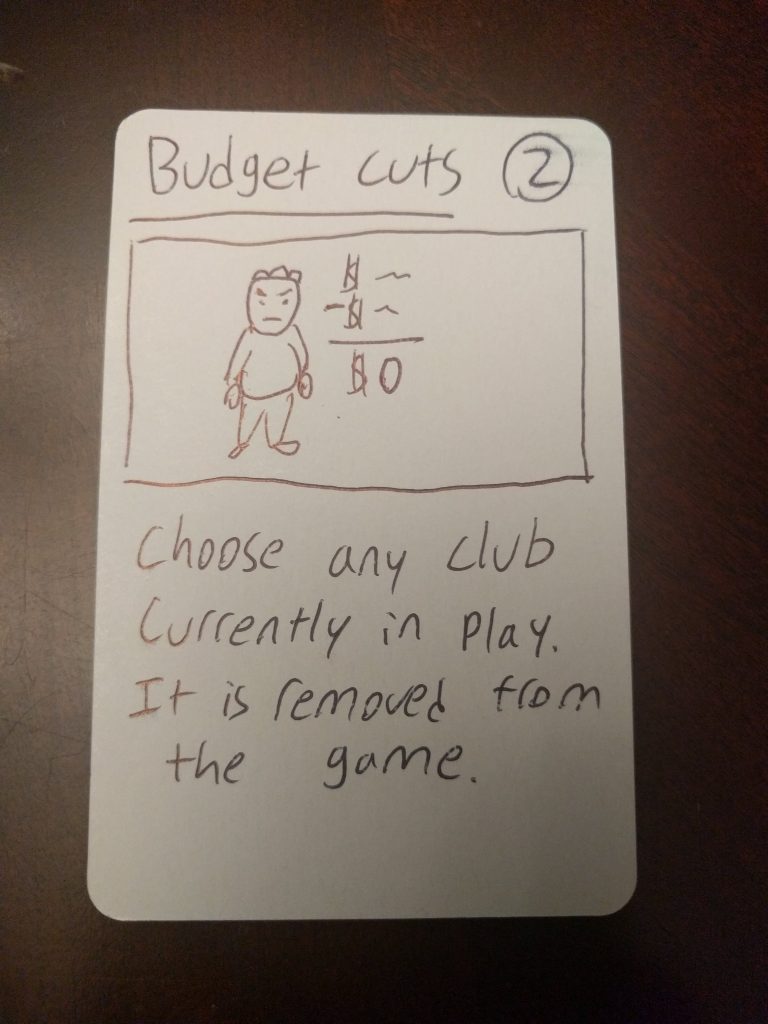 Budget cuts 2
$ ~
-$ ~
$0
Choose any club
Currently in play.
It is removed from
the game.